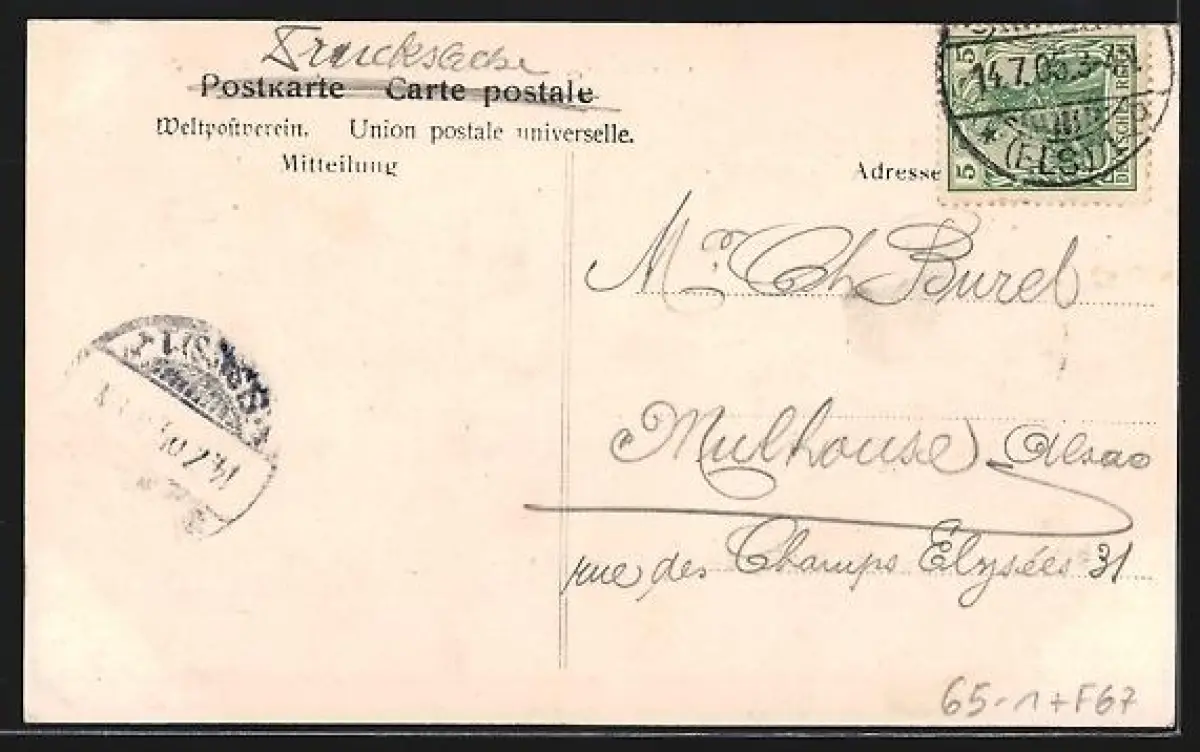 Drucksache
Postkarte Carte postale
Weltpostverein. Union postale universelle.
Mitteilung
Adresse
5 5
14.7.05.3-4N.
(ELS.)
DEUTSCHES REICH
5
Mr Ch Burel
Mulhouse Alsac
rue des Champs Elysées 31
14.7.05
65-1+F67